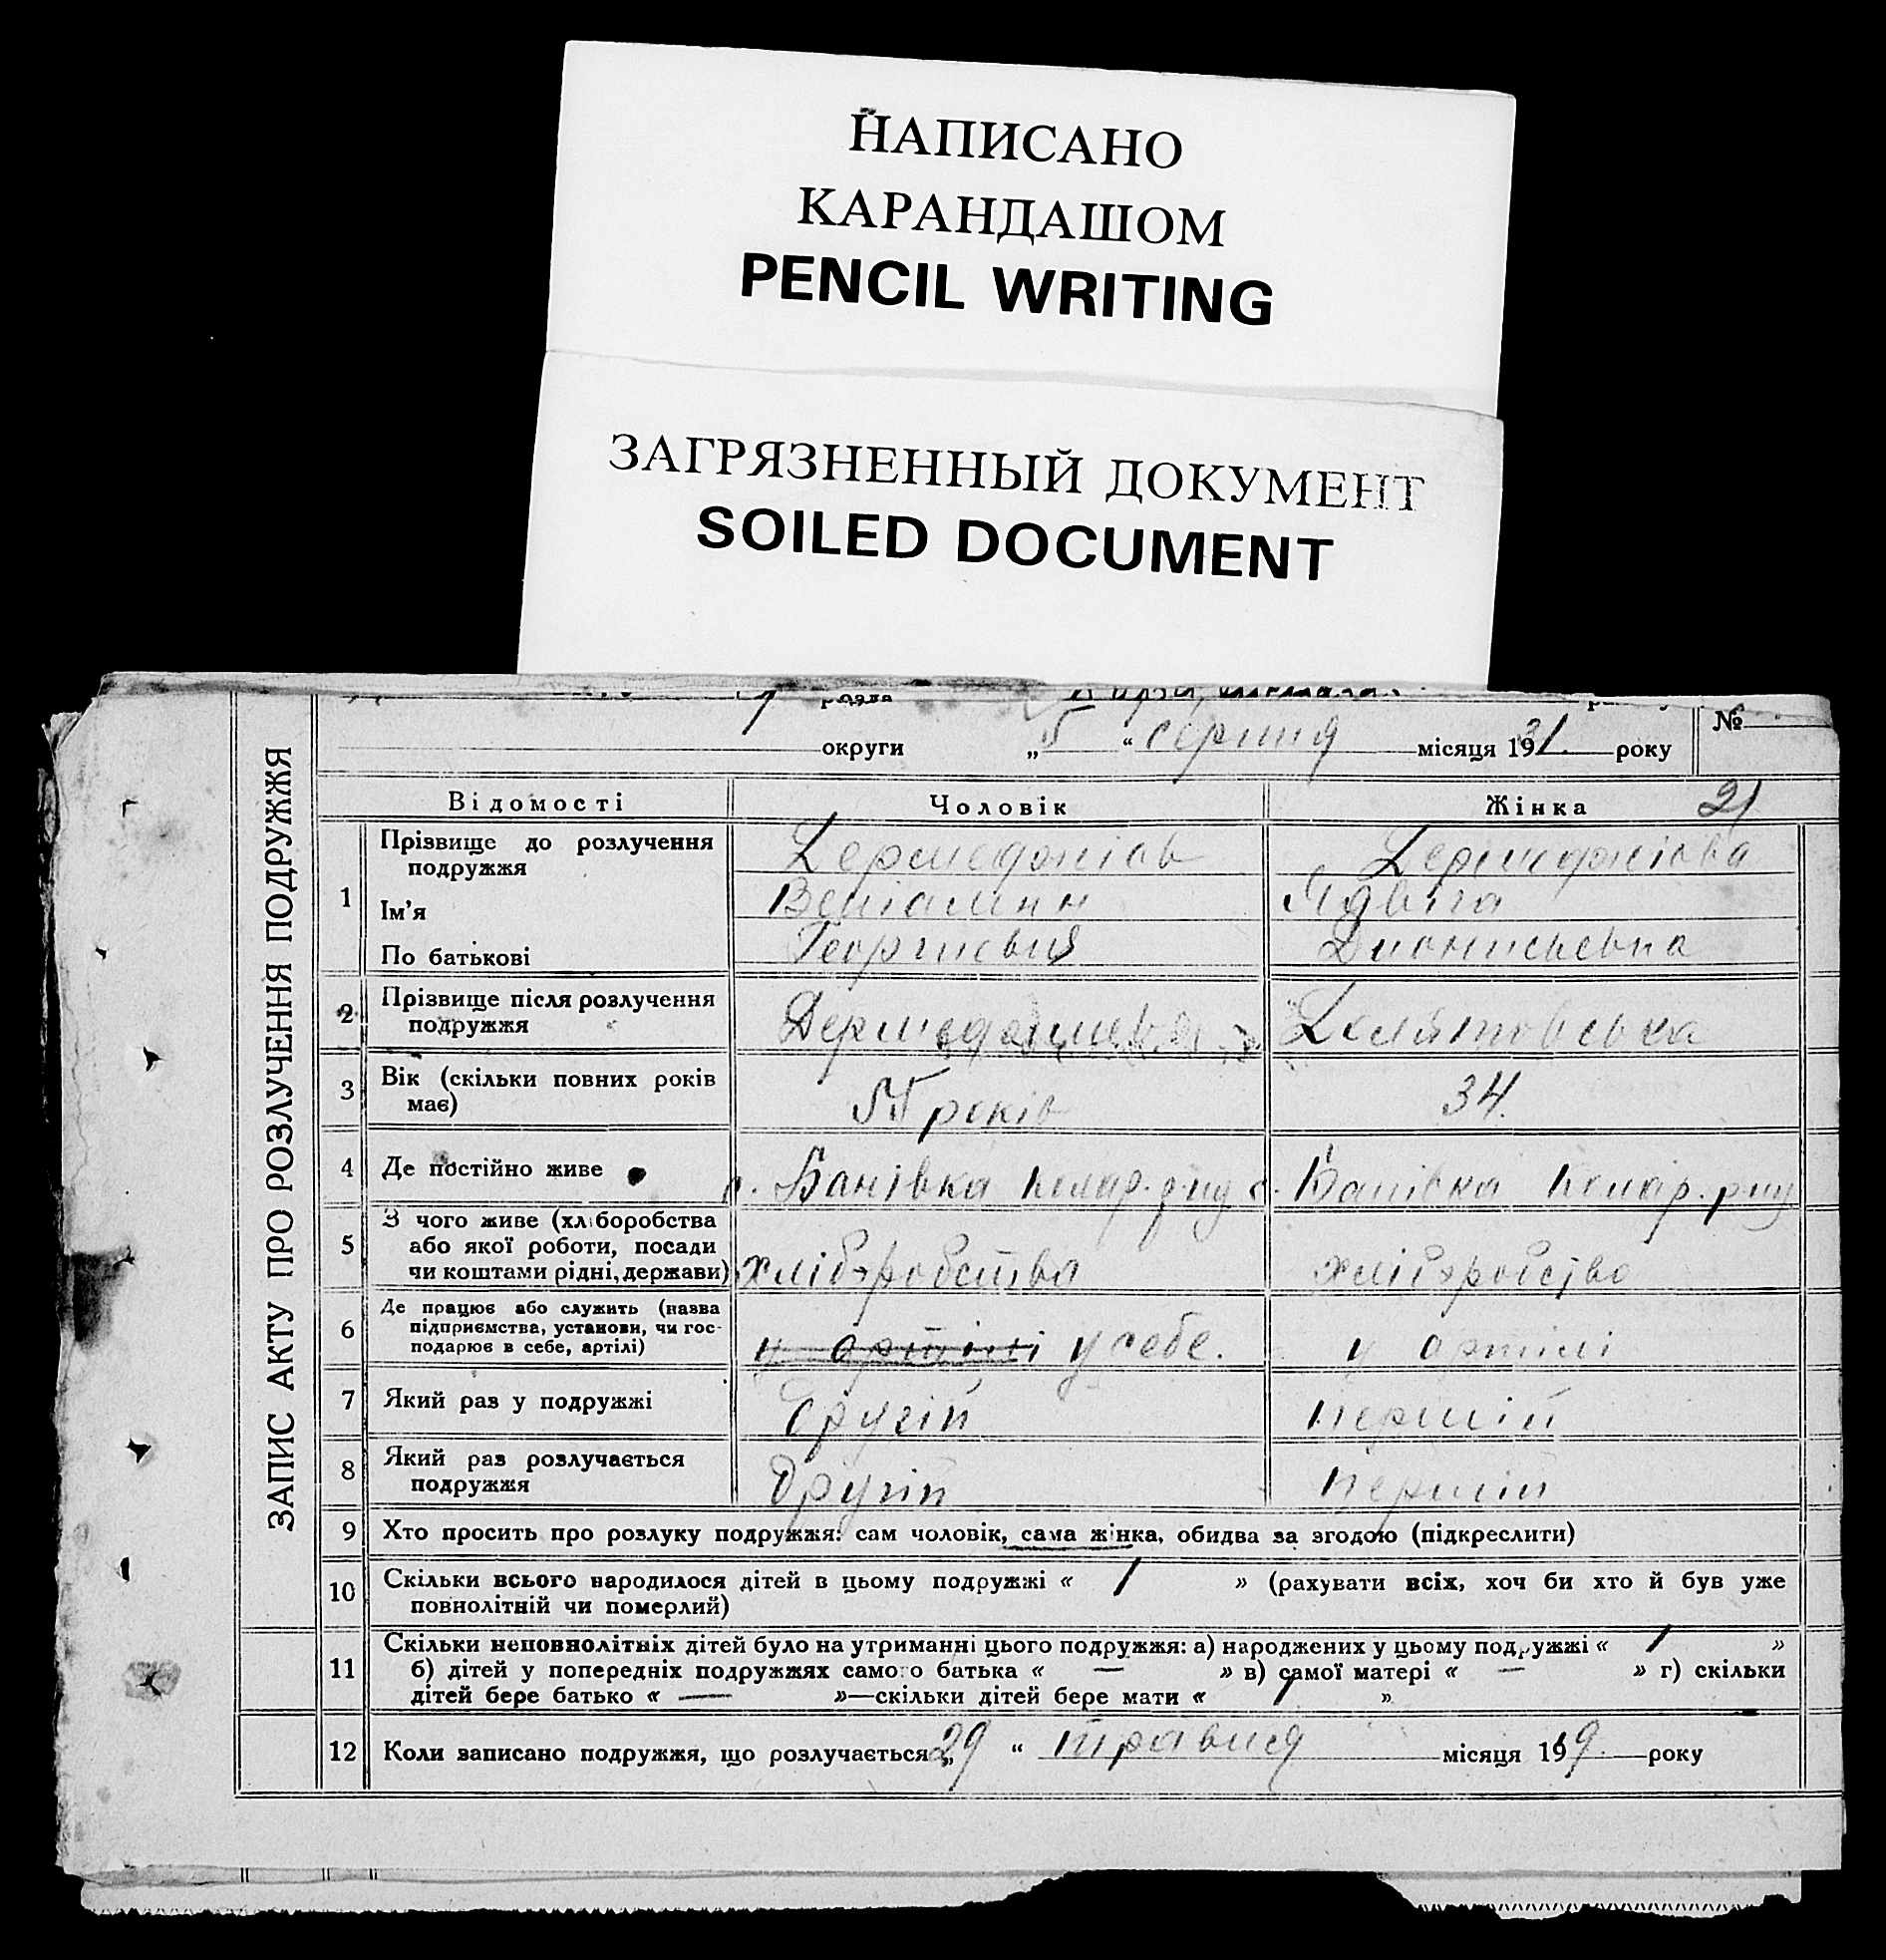 НАПИСАНО
КАРАНДАШОМ
PENCIL WRITING
ЗАГРЯЗНЕННЫЙ ДОКУМЕНТ
SOILED DOCUMENT
округи „5“ серпня місяця 1931. року
№
21
ЗАПИС АКТУ ПРО РОЗЛУЧЕННЯ ПОДРУЖЖЯ
Відомості Чоловік Жінка
1
Прізвище до розлучення
подружжя
Ім'я Веніамин Ядвіга
По батькові Георгіевич Дионисьевна
2 Прізвище після розлучення
подружжя
3 Вік (скільки повних років
має) 55 років 34.
4 Де постійно живе с. Банівка Комар. р-ну с. Банівка Комар. р-ну
5 З чого живе (хліборобства
або якої роботи, посади
чи коштами рідні, держави) хліборобства хліборобство
6 Де працює або служить (назва
підприємства, установи, чи гос-
подарює в себе, артілі) у артілі у себе. у артілі
7 Який раз у подружжі другій першій
8 Який раз розлучається
подружжя другій першій
9 Хто просить про розлуку подружжя: сам чоловік, сама жінка, обидва за згодою (підкреслити)
10 Скільки всього народилося дітей в цьому подружжі « 1 » (рахувати всіх, хоч би хто й був уже
повнолітній чи померлий)
11 Скільки неповнолітніх дітей було на утриманні цього подружжя: а) народжених у цьому подружжі « 1 »
б) дітей у попередніх подружжях самого батька « — » в) самої матері « — » г) скільки
дітей бере батько « — »—скільки дітей бере мати « 1 »
12 Коли записано подружжя, що розлучається „29“ травня місяця 1919. року